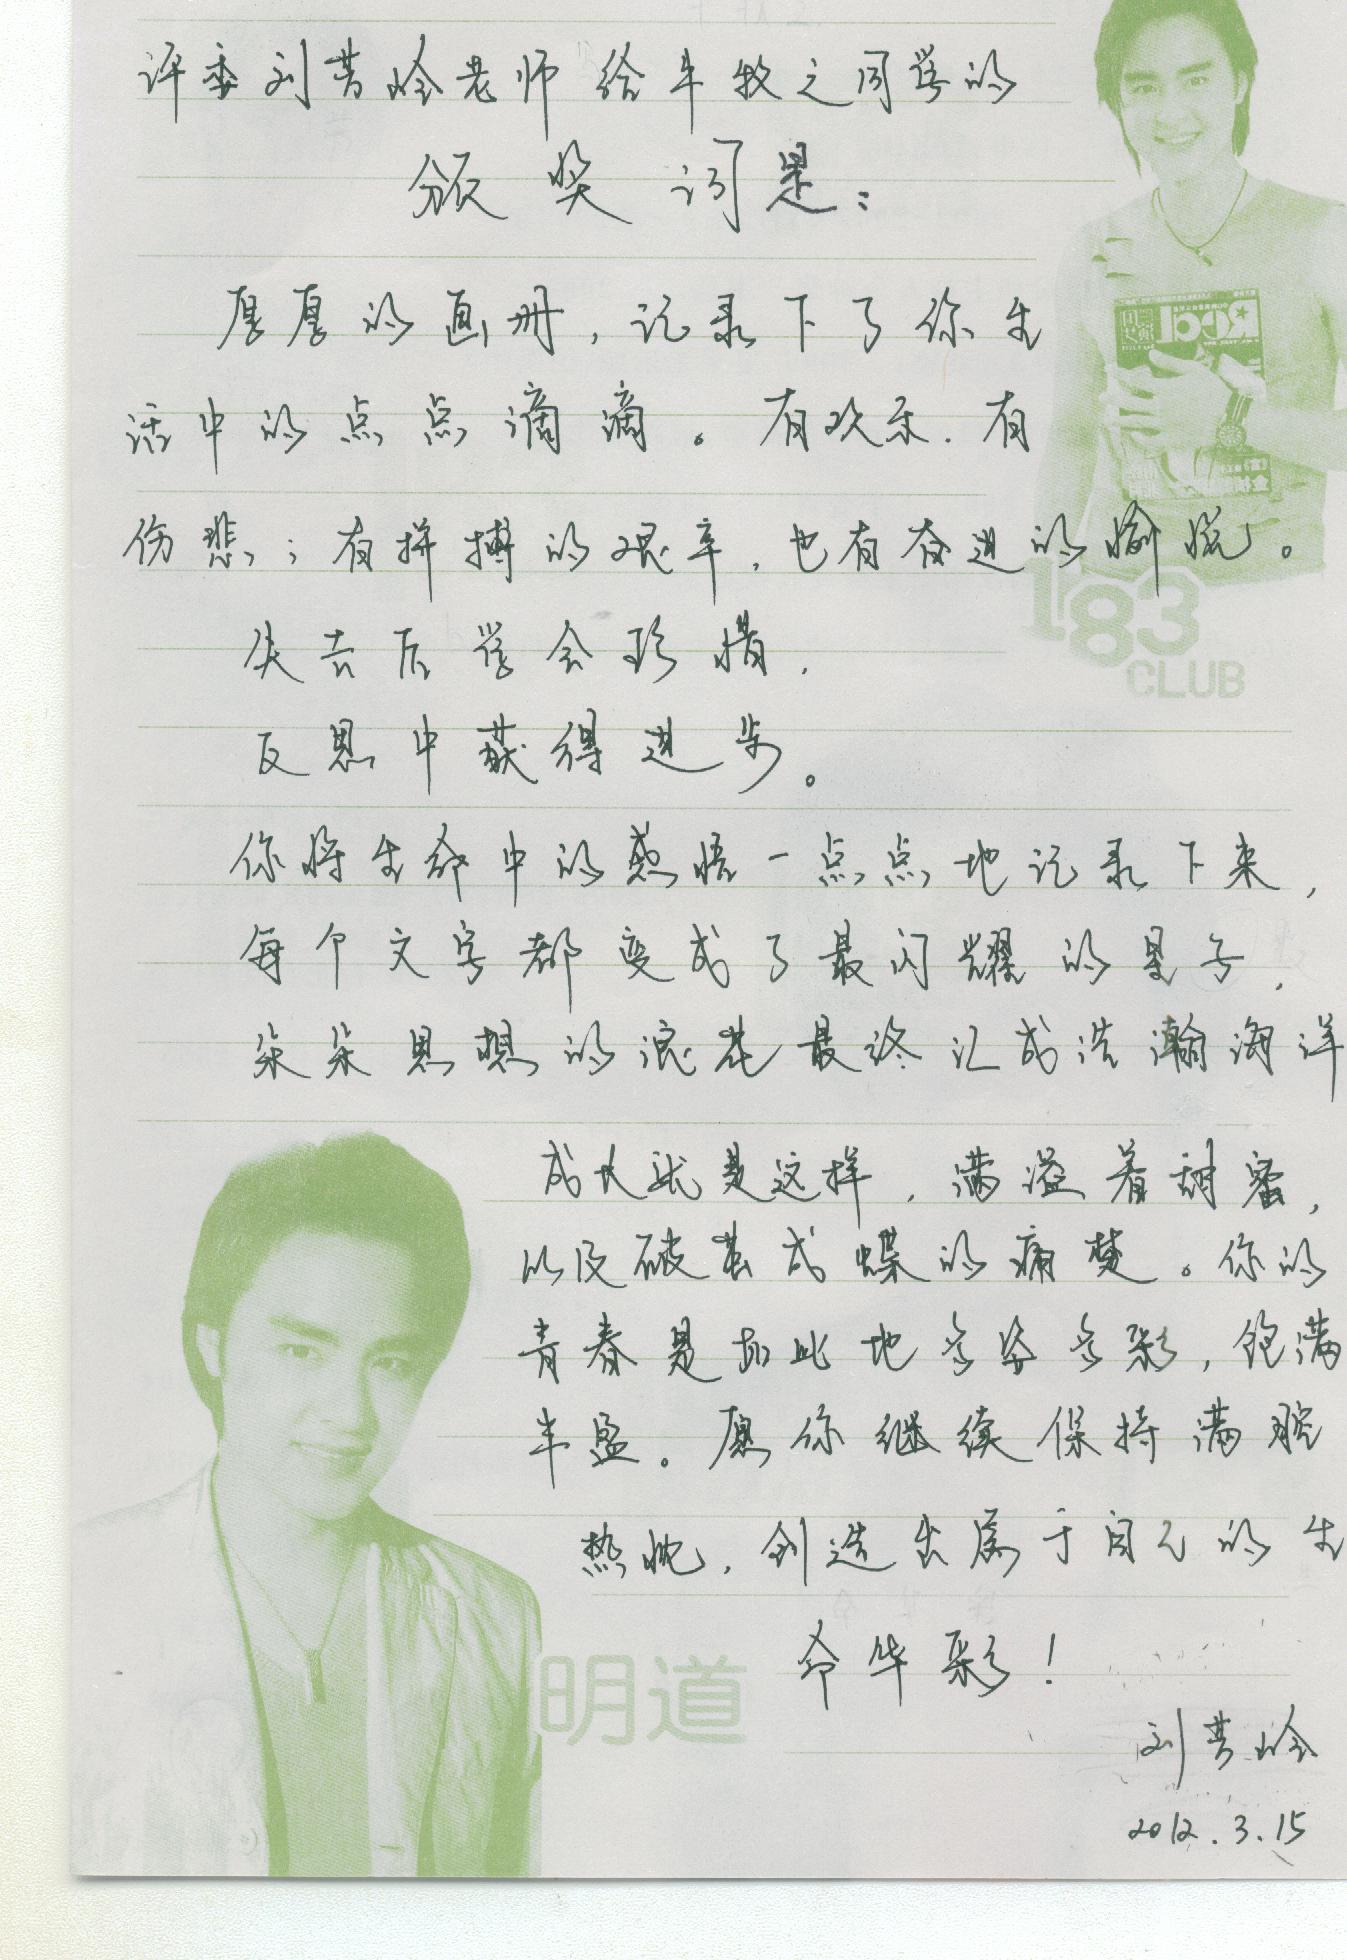 评委刘昔岭老师给牟牧之同学的
颁奖词是：
厚厚的画册，记录下了你生
活中的点点滴滴。有欢乐，有
伤悲；有拼搏的艰辛，也有奋进的愉悦。
失去后学会珍惜，
反思中获得进步。
你将生命中的感悟一点点地记录下来，
每个文字都变成了最闪耀的星子，
朵朵思想的浪花最终汇成浩瀚海洋
成长就是这样，满溢着甜蜜，
以及破茧成蝶的痛楚。你的
青春是如此地多姿多彩，饱满
丰盈。愿你继续保持满腔
热忱，创造出属于自己的生
命华彩！
刘昔岭
2012.3.15
183
CLUB
明道